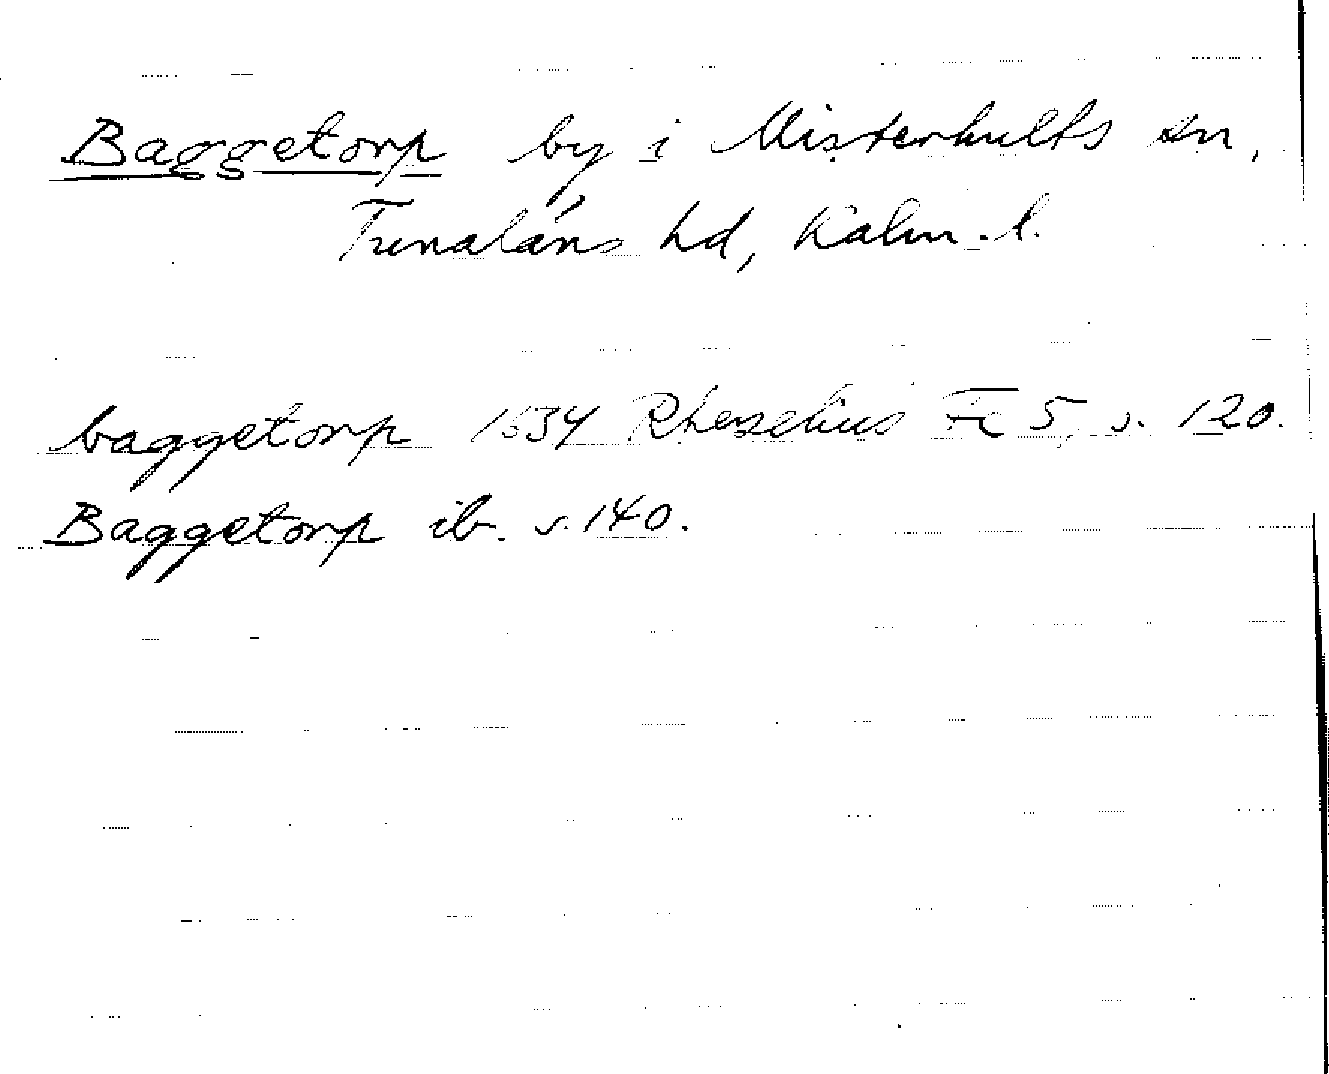 Baggetorp by i Misterhults sn,
Tunaläns hd, Kalm. l.
baggetorp 1634 Rhezelius Fc 5, s. 120.
Baggetorp ib. s. 140.